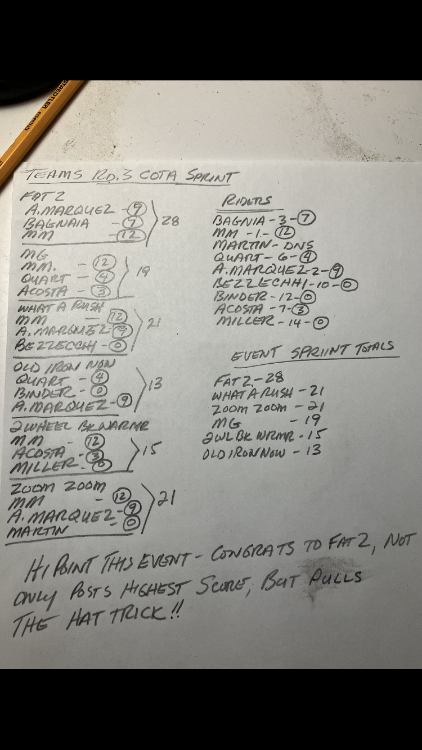 TEAMS RD. 3 COTA SPRINT
FAT 2
A. MARQUEZ - 9
BAGNAIA - 7
MM - 12
28
MG
MM. - 12
QUART - 4
ACOSTA - 3
19
WHAT A RUSH
MM 12
A. MARQUEZ 9
BEZZECCHI - 0
21
OLD IRON NOW
QUART - 4
BINDER - 0
A. MARQUEZ - 9
13
2 WHEEL BK WARMR
MM - 12
ACOSTA - 3
MILLER - 0
15
ZOOM ZOOM
MM - 12
A. MARQUEZ - 9
MARTIN - 0
21
RIDERS
BAGNIA - 3 - 7
MM - 1 - 12
MARTIN - DNS
QUART - 6 - 4
A. MARQUEZ - 2 - 9
BEZZECCHI - 10 - 0
BINDER - 12 - 0
ACOSTA - 7 - 3
MILLER - 14 - 0
EVENT SPRIINT TOTALS
FAT 2 - 28
WHAT A RUSH - 21
ZOOM ZOOM - 21
MG - 19
2WL BK WRMR - 15
OLD IRON NOW - 13
HI POINT THIS EVENT - CONGRATS TO FAT 2, NOT
ONLY POSTS HIGHEST SCORE, BUT PULLS
THE HAT TRICK!!